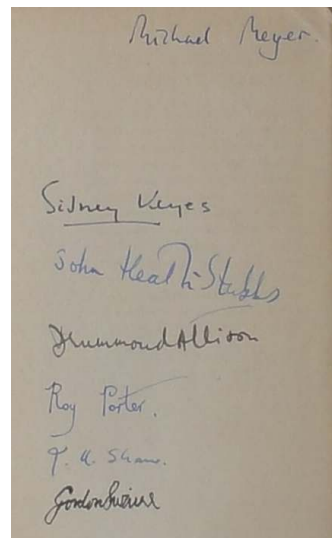 Michael Meyer.
Sidney Keyes
John Heath-Stubbs
Drummond Allison
Roy Porter.
T. R. Shaw.
Gordon Swaine